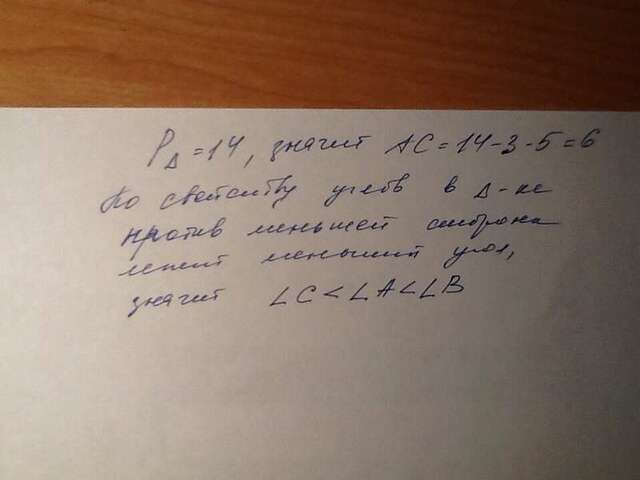 P∆ = 14, значит AC = 14 - 3 - 5 = 6
По свойству углов в ∆-ке
против меньшей стороны
лежит меньший угол,
значит ∠C < ∠A < ∠B